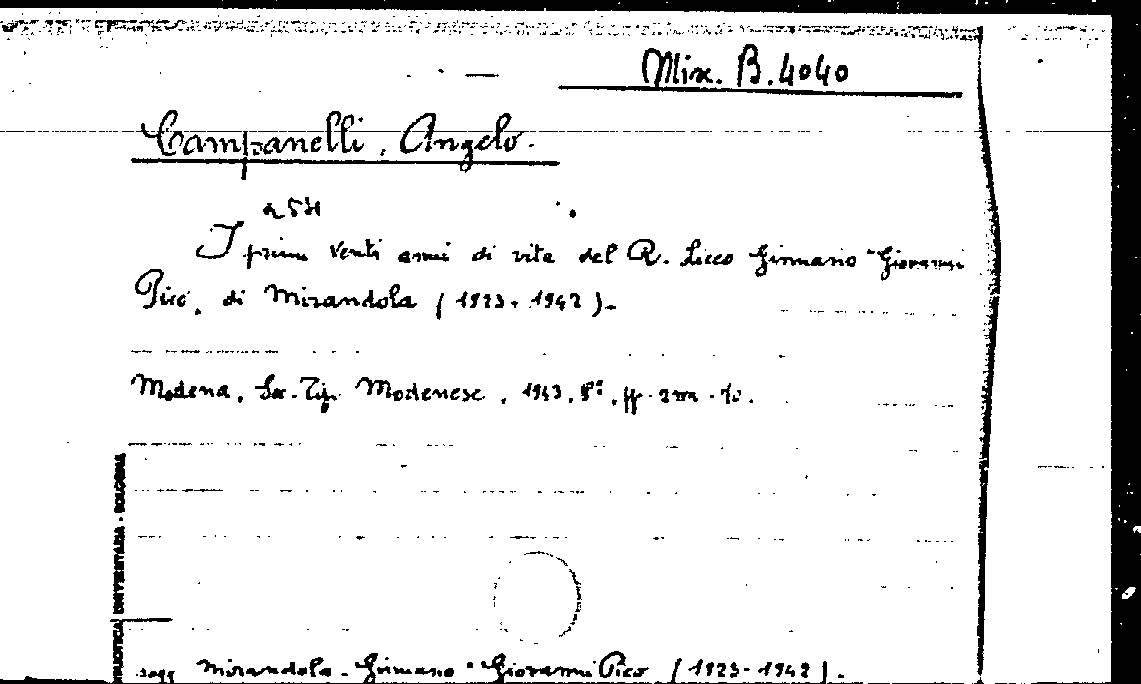 Misc. B. 4040
Campanelli, Angelo.
I primi venti anni di vita del R. Liceo Ginnasio "Giovanni
Pico" di Mirandola (1923-1942).
Modena, Soc. Tip. Modenese, 1943, 8°, pp.
BIBLIOTECA UNIVERSITARIA - BOLOGNA
sogg Mirandola - Ginnasio "Giovanni Pico" (1923-1942).